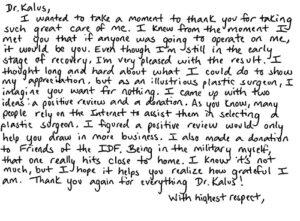 Dr. Kalus,
I wanted to take a moment to thank you for taking
such great care of me. I knew from the moment I
met you that if anyone was going to operate on me,
it would be you. Even though I'm still in the early
stage of recovery, I'm very pleased with the result. I
thought long and hard about what I could do to show
my appreciation, but as an illustrious plastic surgeon, I
imagine you want for nothing. I came up with two
ideas: a positive review and a donation. As you know, many
people rely on the Internet to assist them in selecting a
plastic surgeon. I figured a positive review would only
help you draw in more business. I also made a donation
to Friends of the IDF. Being in the military myself,
that one really hits close to home. I know it's not
much, but I hope it helps you realize how grateful I
am. Thank you again for everything Dr. Kalus!
With highest respect,